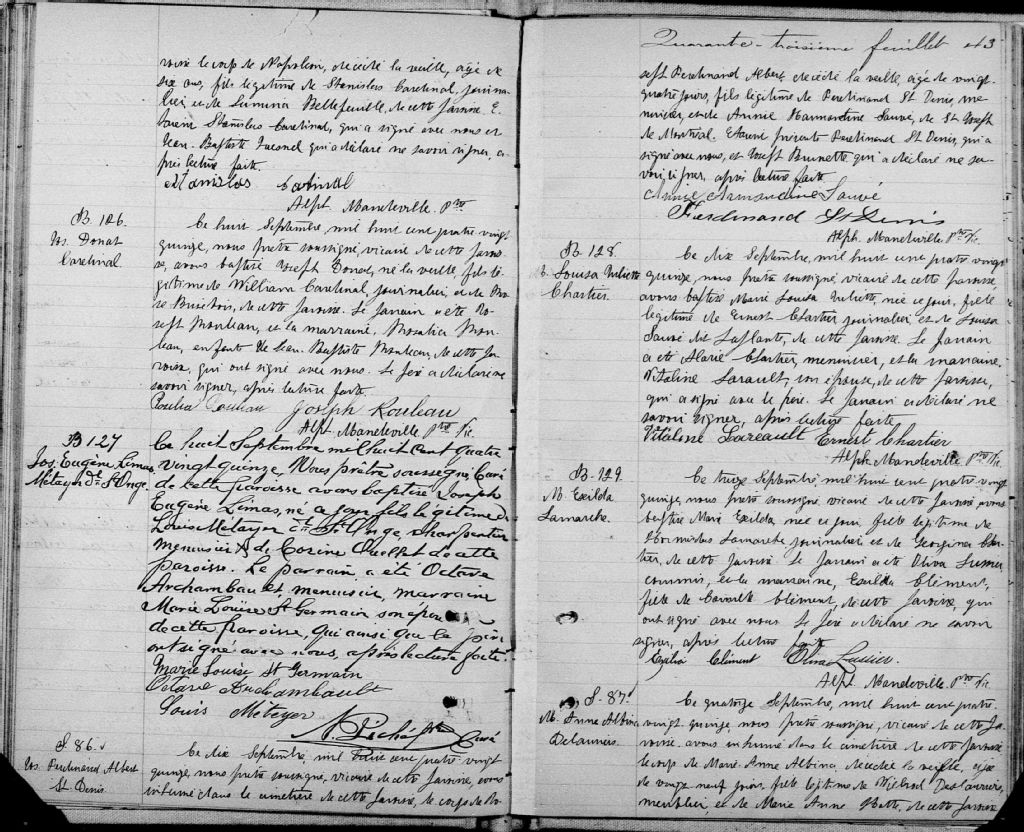 roisse le corps de Napoléon, décédé la veille, âgé de
six ans, fils légitime de Stanislas Cardinal, journa-
lier, et de Lumina Bellefeuille, de cette paroisse. E-
taient Stanislas Cardinal, qui a signé avec nous et
Jean-Baptiste qui a déclaré ne savoir signer, a-
près lecture faite.
Stanislas Cardinal
Alph. Mandeville. Ptre
B. 126.
Jos. Donat
Cardinal.
Ce huit Septembre, mil huit cent quatre vingt
quinze, nous prêtre soussigné, vicaire de cette parois-
se, avons baptisé Joseph Donat, né la veille, fils lé-
gitime de William Cardinal, journalier, et de Ro-
se de cette paroisse. Le parrain a été Jo-
seph Rouleau, et la marraine, Rosalia Rou-
leau, enfants de Jean-Baptiste Rouleau, de cette pa-
roisse, qui ont signé avec nous. Le père a déclaré ne
savoir signer, après lecture faite.
Rouleau Joseph Rouleau
Alph. Mandeville Ptre Vic.
B 127
Jos. Eugène Limas
Métayer dt St Onge.
Ce huit Septembre mil huit cent quatre
vingt quinze, Nous prêtre soussigné, Curé
de cette paroisse avons baptisé Joseph
Eugène Limas, né ce jour, fils légitime de
Louis Métayer dit St. Onge, charpentier
menuisier & de Corine Ouellet de cette
paroisse. Le parrain a été Octave
Archambau et, menuisier, marraine
Marie Louise St Germain son épouse
de cette paroisse, qui ainsi que le père
ont signé avec nous, après lecture faite.
Marie Louise St Germain
Octave Archambault
Louis Méteyer
Curé
S. 86.
Jos. Ferdinand Albert
St Denis.
Ce dix Septembre, mil huit cent quatre vingt
quinze, nous prêtre soussigné, vicaire de cette paroisse, avons
inhumé dans le cimetière de cette paroisse, le corps de Jo-
Quarante-troisième feuillet 43
seph Ferdinand Albert, décédé la veille, âgé de vingt-
quatre jours, fils légitime de Ferdinand St Denis, me-
nuisier, et de Annie Sauvé, de St Joseph
de Montréal. Etaient présents Ferdinand St Denis, qui a
signé avec nous, et Joseph Brunette qui a déclaré ne sa-
voir signer, après lecture faite.
Annie Armandine Sauvé
Ferdinand St Denis
Alph. Mandeville Ptre Vic.
B. 128.
M. Louisa Juliette
Chartier.
Ce dix Septembre, mil huit cent quatre vingt
quinze, nous prêtre soussigné, vicaire de cette paroisse,
avons baptisé Marie Louisa Juliette, née ce jour, fille
légitime de Ernest Chartier journalier et de Louisa
Sauvé dit Laplante, de cette paroisse. Le parrain
a été Alarie Chartier, menuisier, et la marraine,
Vitaline Lareault, son épouse, de cette paroisse,
qui a signé avec le père. Le parrain a déclaré ne
savoir signer, après lecture faite.
Vitaline Lareault Ernest Chartier
Alph Mandeville. Ptre Vic.
B. 129.
M. Exilda
Lamarche.
Ce treize Septembre, mil huit cent quatre vingt
quinze, nous prêtre soussigné, vicaire de cette paroisse, avons
baptisé Marie Exilda, née ce jour, fille légitime de
Hormisdas Lamarche journalier et de Georgina Char-
tier, de cette paroisse. Le parrain a été Oliva
commis, et la marraine, Exilda Clément,
fille de Camille Clément, de cette paroisse, qui
ont signé avec nous. Le père a déclaré ne savoir
signer, après lecture faite.
Exilda Clément Oliva
Alph. Mandeville. Ptre Vic.
S. 87.
M. Anne Albina
Deslauriers.
Ce quatorze Septembre, mil huit cent quatre
vingt quinze, nous prêtre soussigné, vicaire de cette pa-
roisse, avons inhumé dans le cimetière de cette paroisse
le corps de Marie-Anne Albina, décédée la veille, âgée
de vingt neuf jours, fille légitime de Wilfrid Deslauriers,
meublier, et de Marie Anne de cette paroisse